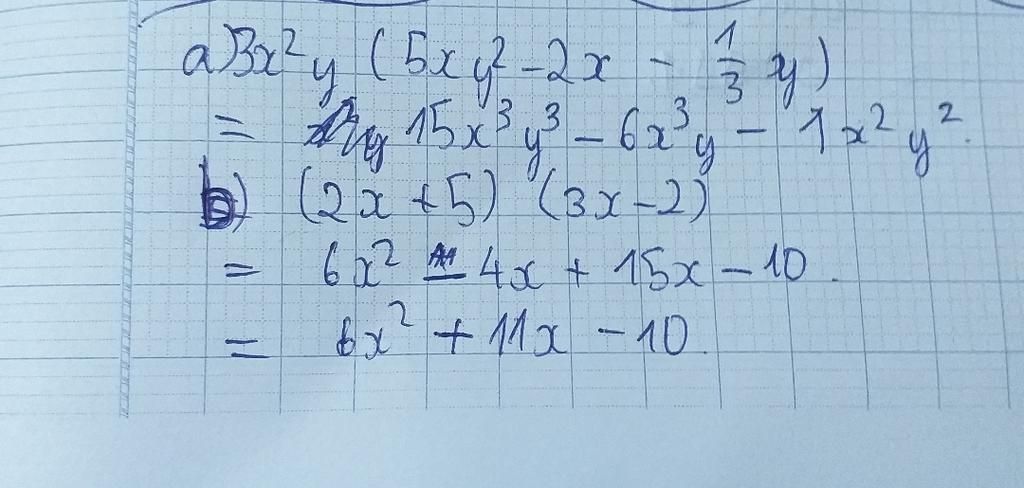 a) 3x²y (5xy² - 2x - 1/3 y)
= 15x³y³ - 6x³y - 1x²y².
b) (2x + 5) (3x - 2)
= 6x² - 4x + 15x - 10.
= 6x² + 11x - 10.